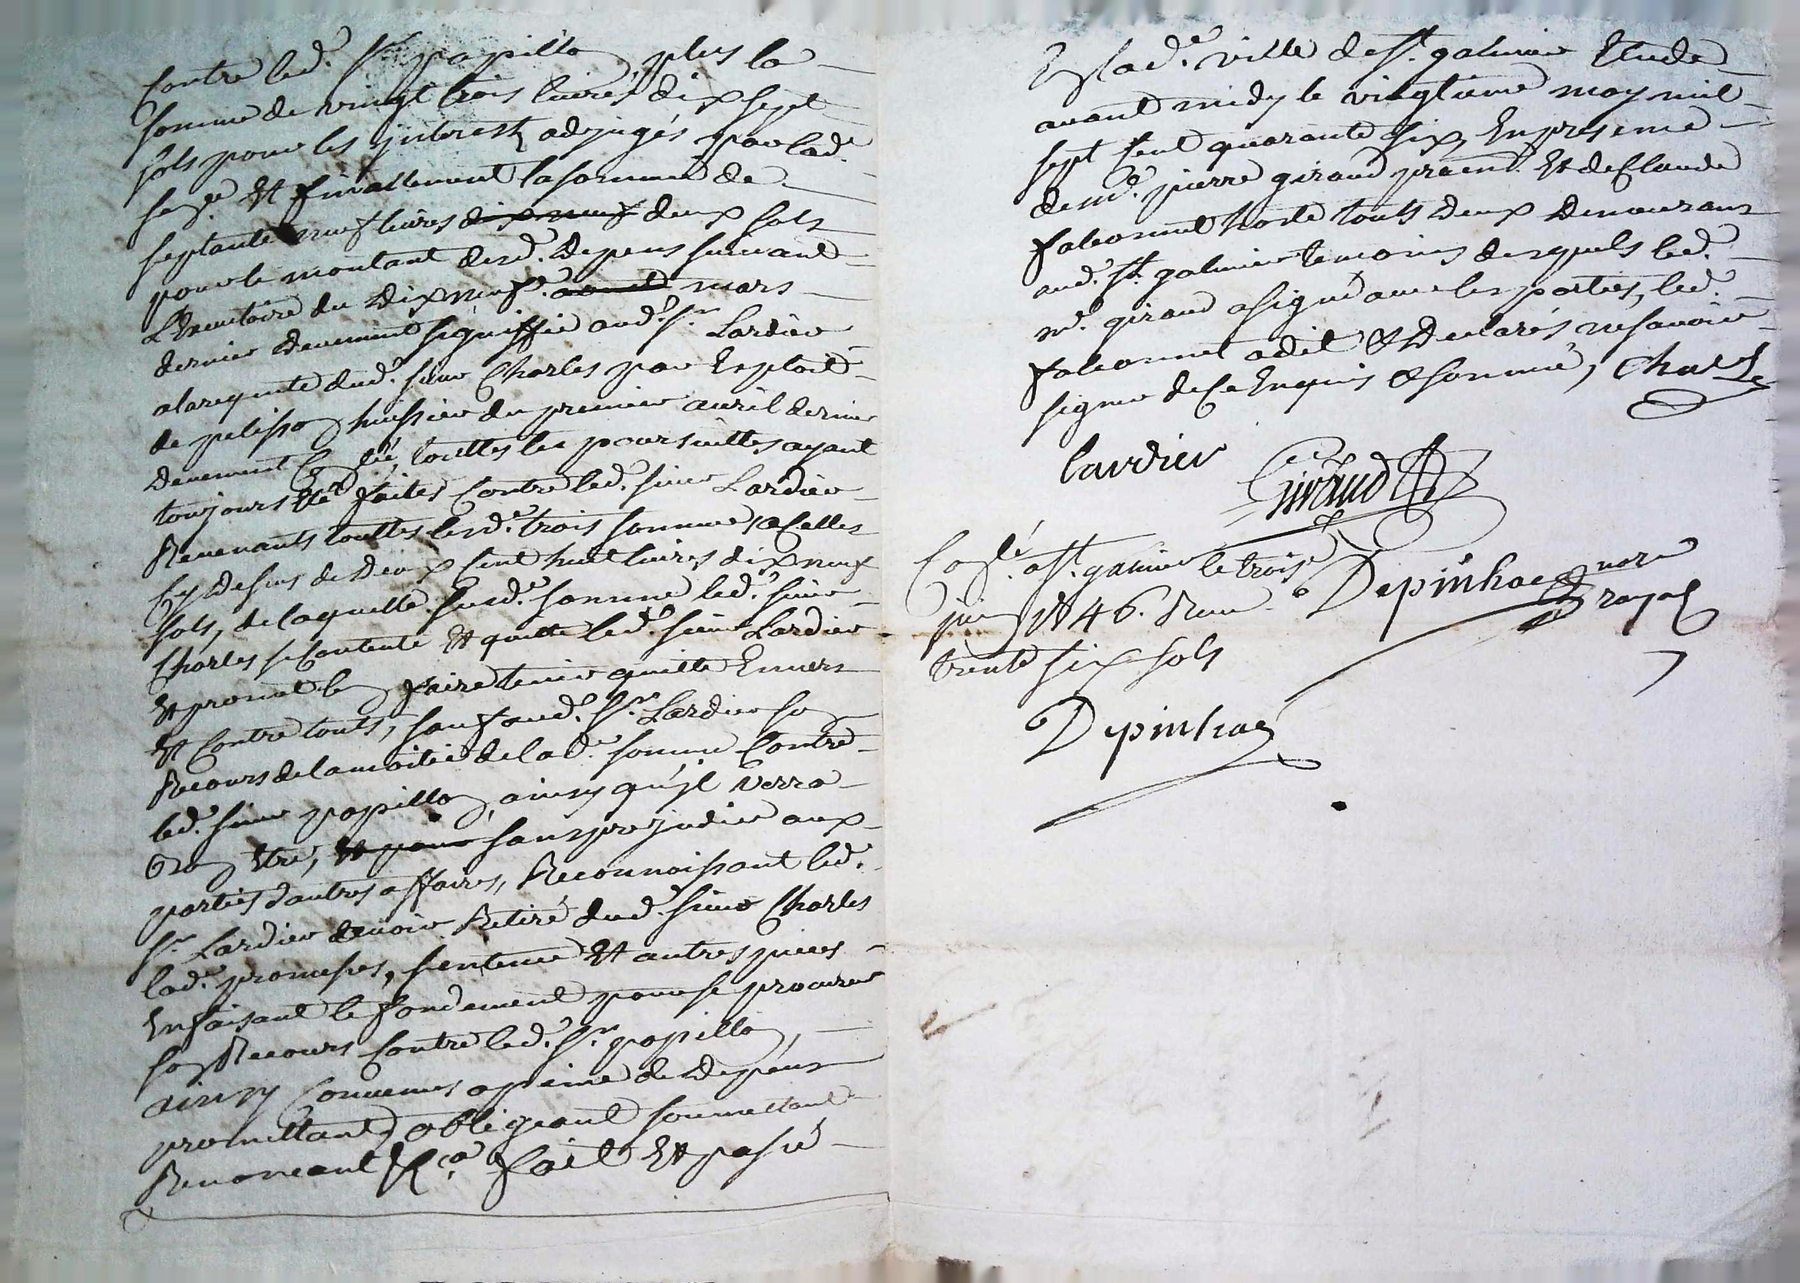 Contre led. Sr. papillon plus la
somme de vingt trois livres dix sept
sols pour les jnterestz adjugés par lad.
sence. Et finallement la somme de
septante neuf livres dix neuf deux sols
pour le montant desd. depens suivant
L'Executoire du dix neuf. avril mars
dernier duement signiffié aud. Sr. Lardier
a la requete dud. sieur Charles par Exploit
de pelisson huissier du premier avril dernier
duement Con.lé, touttes les poursuittes ayant
toujours Eté faites Contre led. sieur Lardier
Revenants touttes lesd. trois sommes a Celles
Cy dessus de deux Cent huit livres dix neuf
sols, de laquelle susd. somme led. sieur
Charles se Contente Et quitte led. sieur Lardier
Et promet le faire tenir quitte Envers
Et Contre touts, sauf aud. Sr. Lardier son
Recours de la moitié de lad. somme Contre
led. sieur papillon, ainsy qu'jl verra
bon Etre, Et pour sans prejudice aux
parties d'autres affaires, Reconnoissant led.
Sr. Lardier d'avoir Retiré dud. sieur Charles
lad. promesses, sentence Et autres pieces
En faisant le fondement pour se procurer
son Recours Contre led. Sr. papillon,
ainsy Convenus a peine de depens
promettant obligeant soumettant
Renonceant &ca. fait Et passé
En lad. ville de St. galmier Etude
avant midy le vingtieme may mil
sept Cent quarante six, En presence
de Me. pierre giraud praen. Et de Claude
falconnet hoste touts deux demeurans
aud. St. galmier temoins desquels led.
Me. giraud a signé avec les parties, led.
falconnet a dit & declarés ne savoir
signer de Ce Enquis & sommé, Charles
lardier
Giraud
Con.lé a St. galmier le trois
juin 1746. Reçu
trente six sols
Depinhac
Depinhac nore
royal